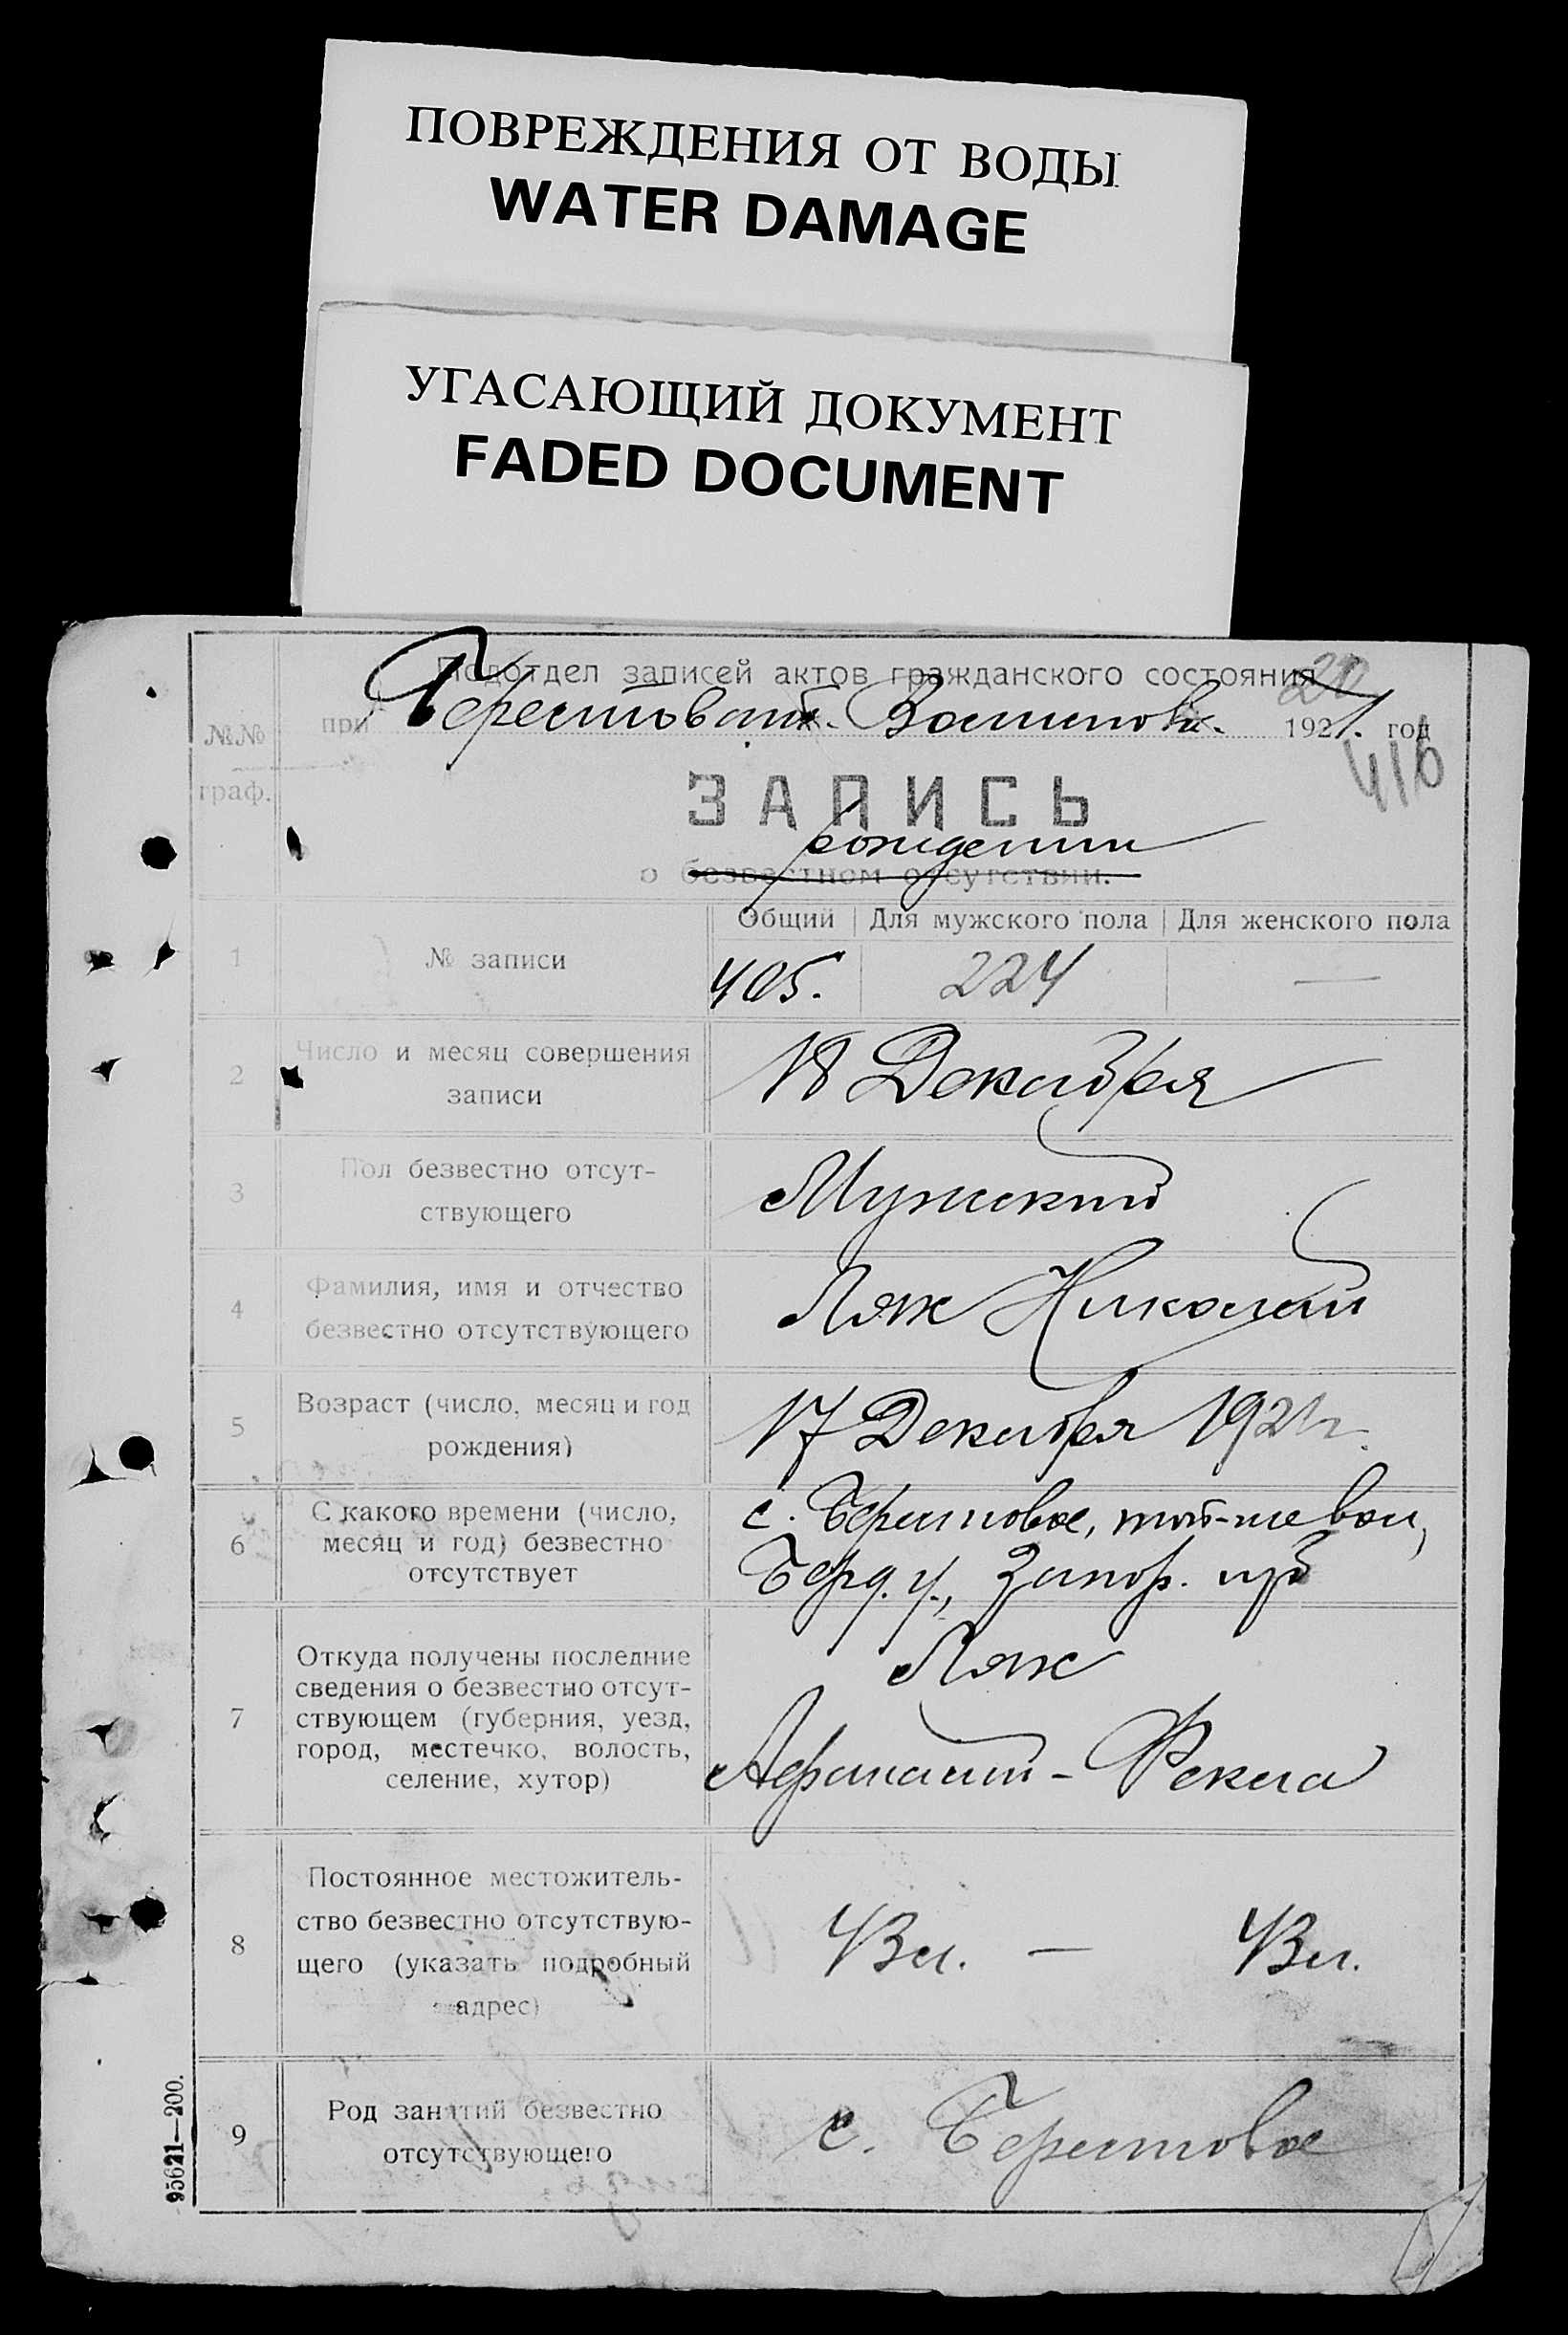 ПОВРЕЖДЕНИЯ ОТ ВОДЫ
WATER DAMAGE
УГАСАЮЩИЙ ДОКУМЕНТ
FADED DOCUMENT
Подотдел записей актов гражданского состояния
при Берестоват. 1921. год
416
№№
граф.
ЗАПИСЬ
рождении
о безвестном отсутствии.
Общий Для мужского пола Для женского пола
1 № записи 405. 224 —
2 Число и месяц совершения
записи
18 Декабря
3 Пол безвестно отсут-
ствующего
Мужский
4 Фамилия, имя и отчество
безвестно отсутствующего
Ляж Николай
5 Возраст (число, месяц и год
рождения)
17 Декабря 1921 г.
6 С какого времени (число,
месяц и год) безвестно
отсутствует
с. Берестовое, той-же вол,
Берд. у., Запор. губ
7 Откуда получены последние
сведения о безвестно отсут-
ствующем (губерния, уезд,
город, местечко, волость,
селение, хутор)
Ляж
Афанасий - Фекла
8 Постоянное местожитель-
ство безвестно отсутствую-
щего (указать подробный
адрес)
9 Род занятий безвестно
отсутствующего
с. Берестовое
95621—200.